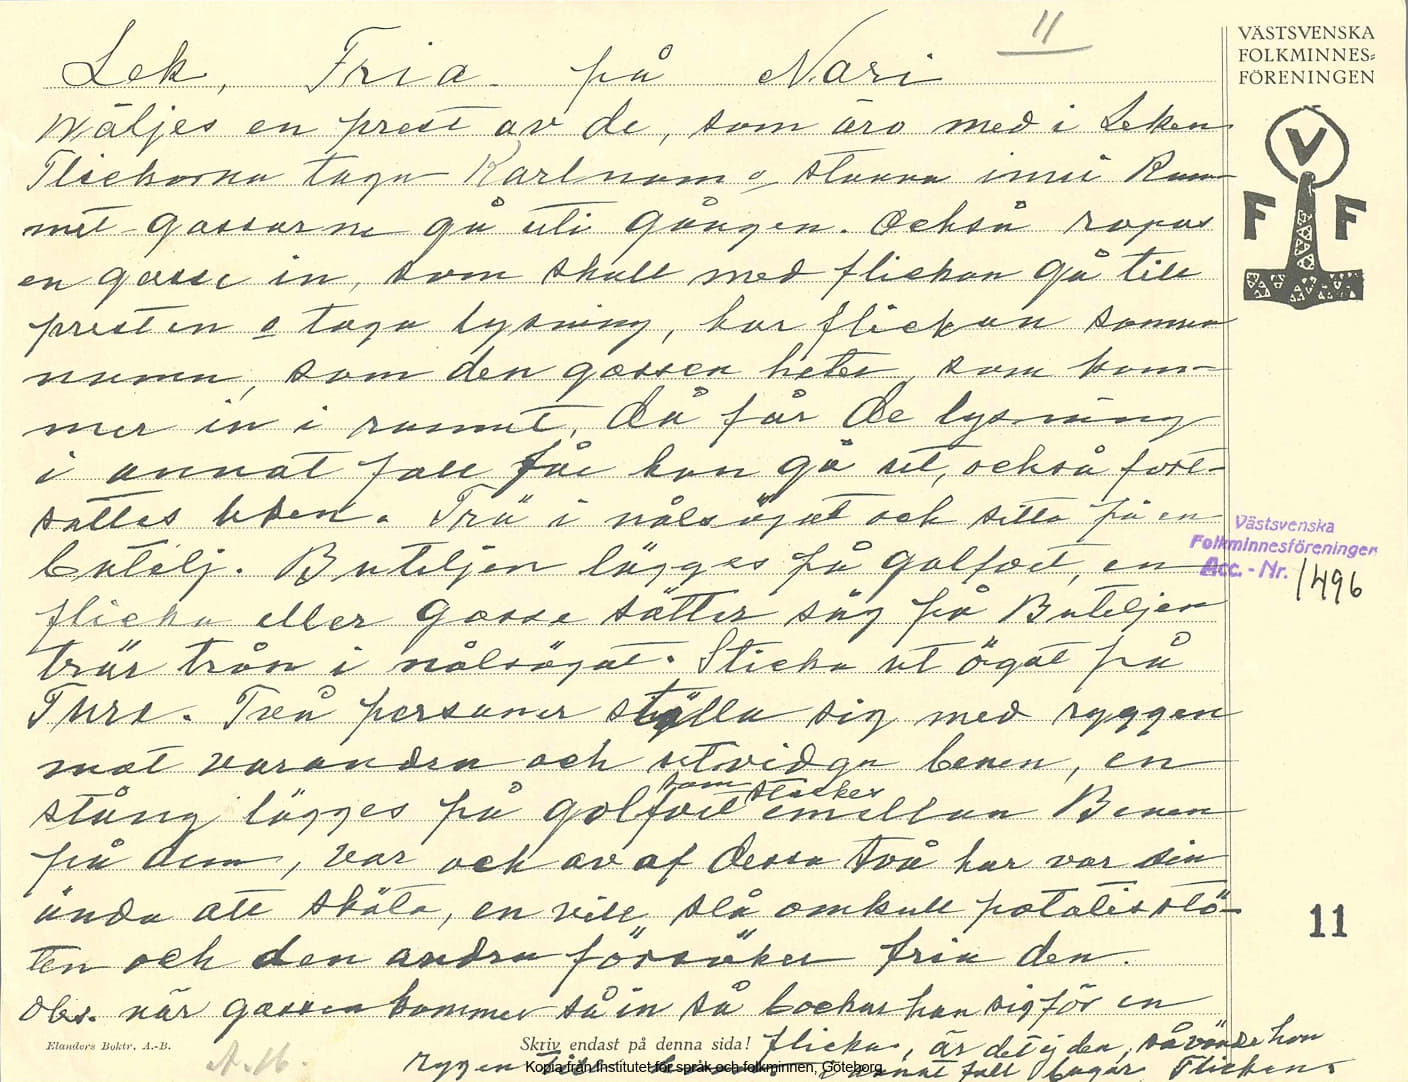 11
VÄSTSVENSKA
FOLKMINNES=
FÖRENINGEN
V
F F
Lek, Fria på Nari
Wäljes en prest av de, som äro med i Leken
Flickorna taga Karlnam o stanna inni Rum-
met gossarne gå uti gången. Också ropas
en gosse in, som skall med flickan gå till
presten o taga lysning, har flickan samma
namn, som den gossen heter, som kom-
mer in i rummet, då får de lysning
i annat fall får han gå ut, också fort-
sättes leken. Trä i nålsögat och sitta på en
butelj. Buteljen lägges på golfvet, en
flicka eller gosse sätter säg på Buteljen
trär trån i nålsögat. Sticka ut ögat på
Ture. Två personer ställa sig med ryggen
mot varandra och utvidga benen, en
som sticker
stång lägges på golfvet emellan Benen
på dem, var och av af dessa två har var sin
ända att sköta, en vill slå omkull potatisstö-
ten och den andra försöker fria den.
Obs. när gossen kommer så in så bockar han sig för en
flicka, är det ej den, så vänder hon
ryggen till annat fall tager Flickan
Elanders Boktr. A.-B.
A. H.
Skriv endast på denna sida!
Kopia från Institutet för språk och folkminnen, Göteborg
Västsvenska
Folkminnesföreningen
Acc. - Nr. 1496
11